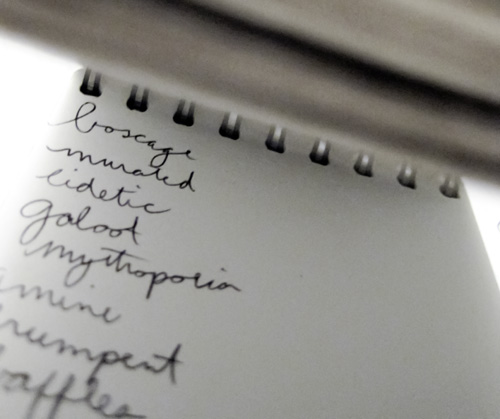 boscage
murated
eidetic
galoot
mythoporia
mine
rumpent
baffles